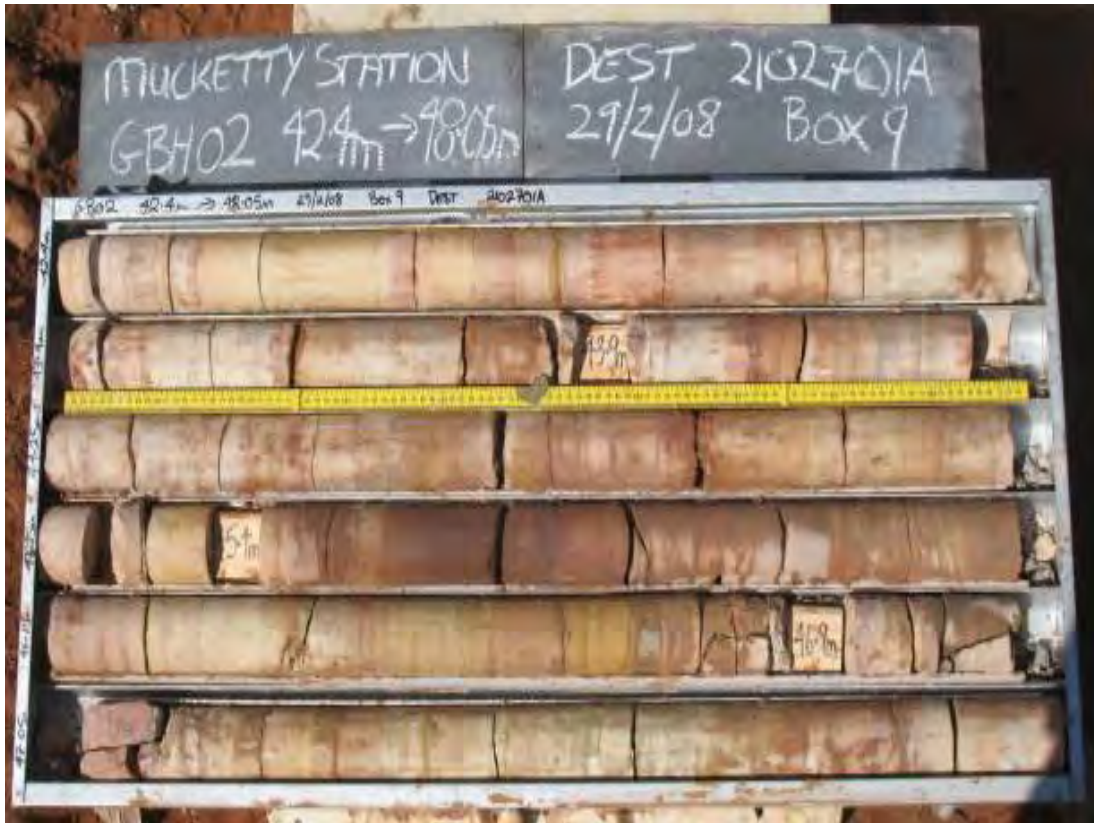 MUCKETTY STATION
GBH02 42.4m → 48.05m
DEST 2102701A
29/2/08 BOX 9
GB02 42.4m → 48.05m 29/2/08 Box 9 DEST 2102701A
42.4m
43.9m
5.4m
46.9m
48.05